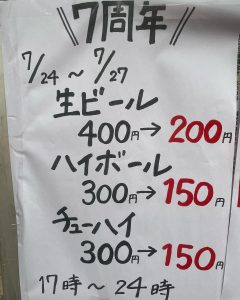 \\ 7周年 //
7/24 ~ 7/27
生ビール
400円→200円
ハイボール
300円→150円
チューハイ
300円→150円
17時~24時